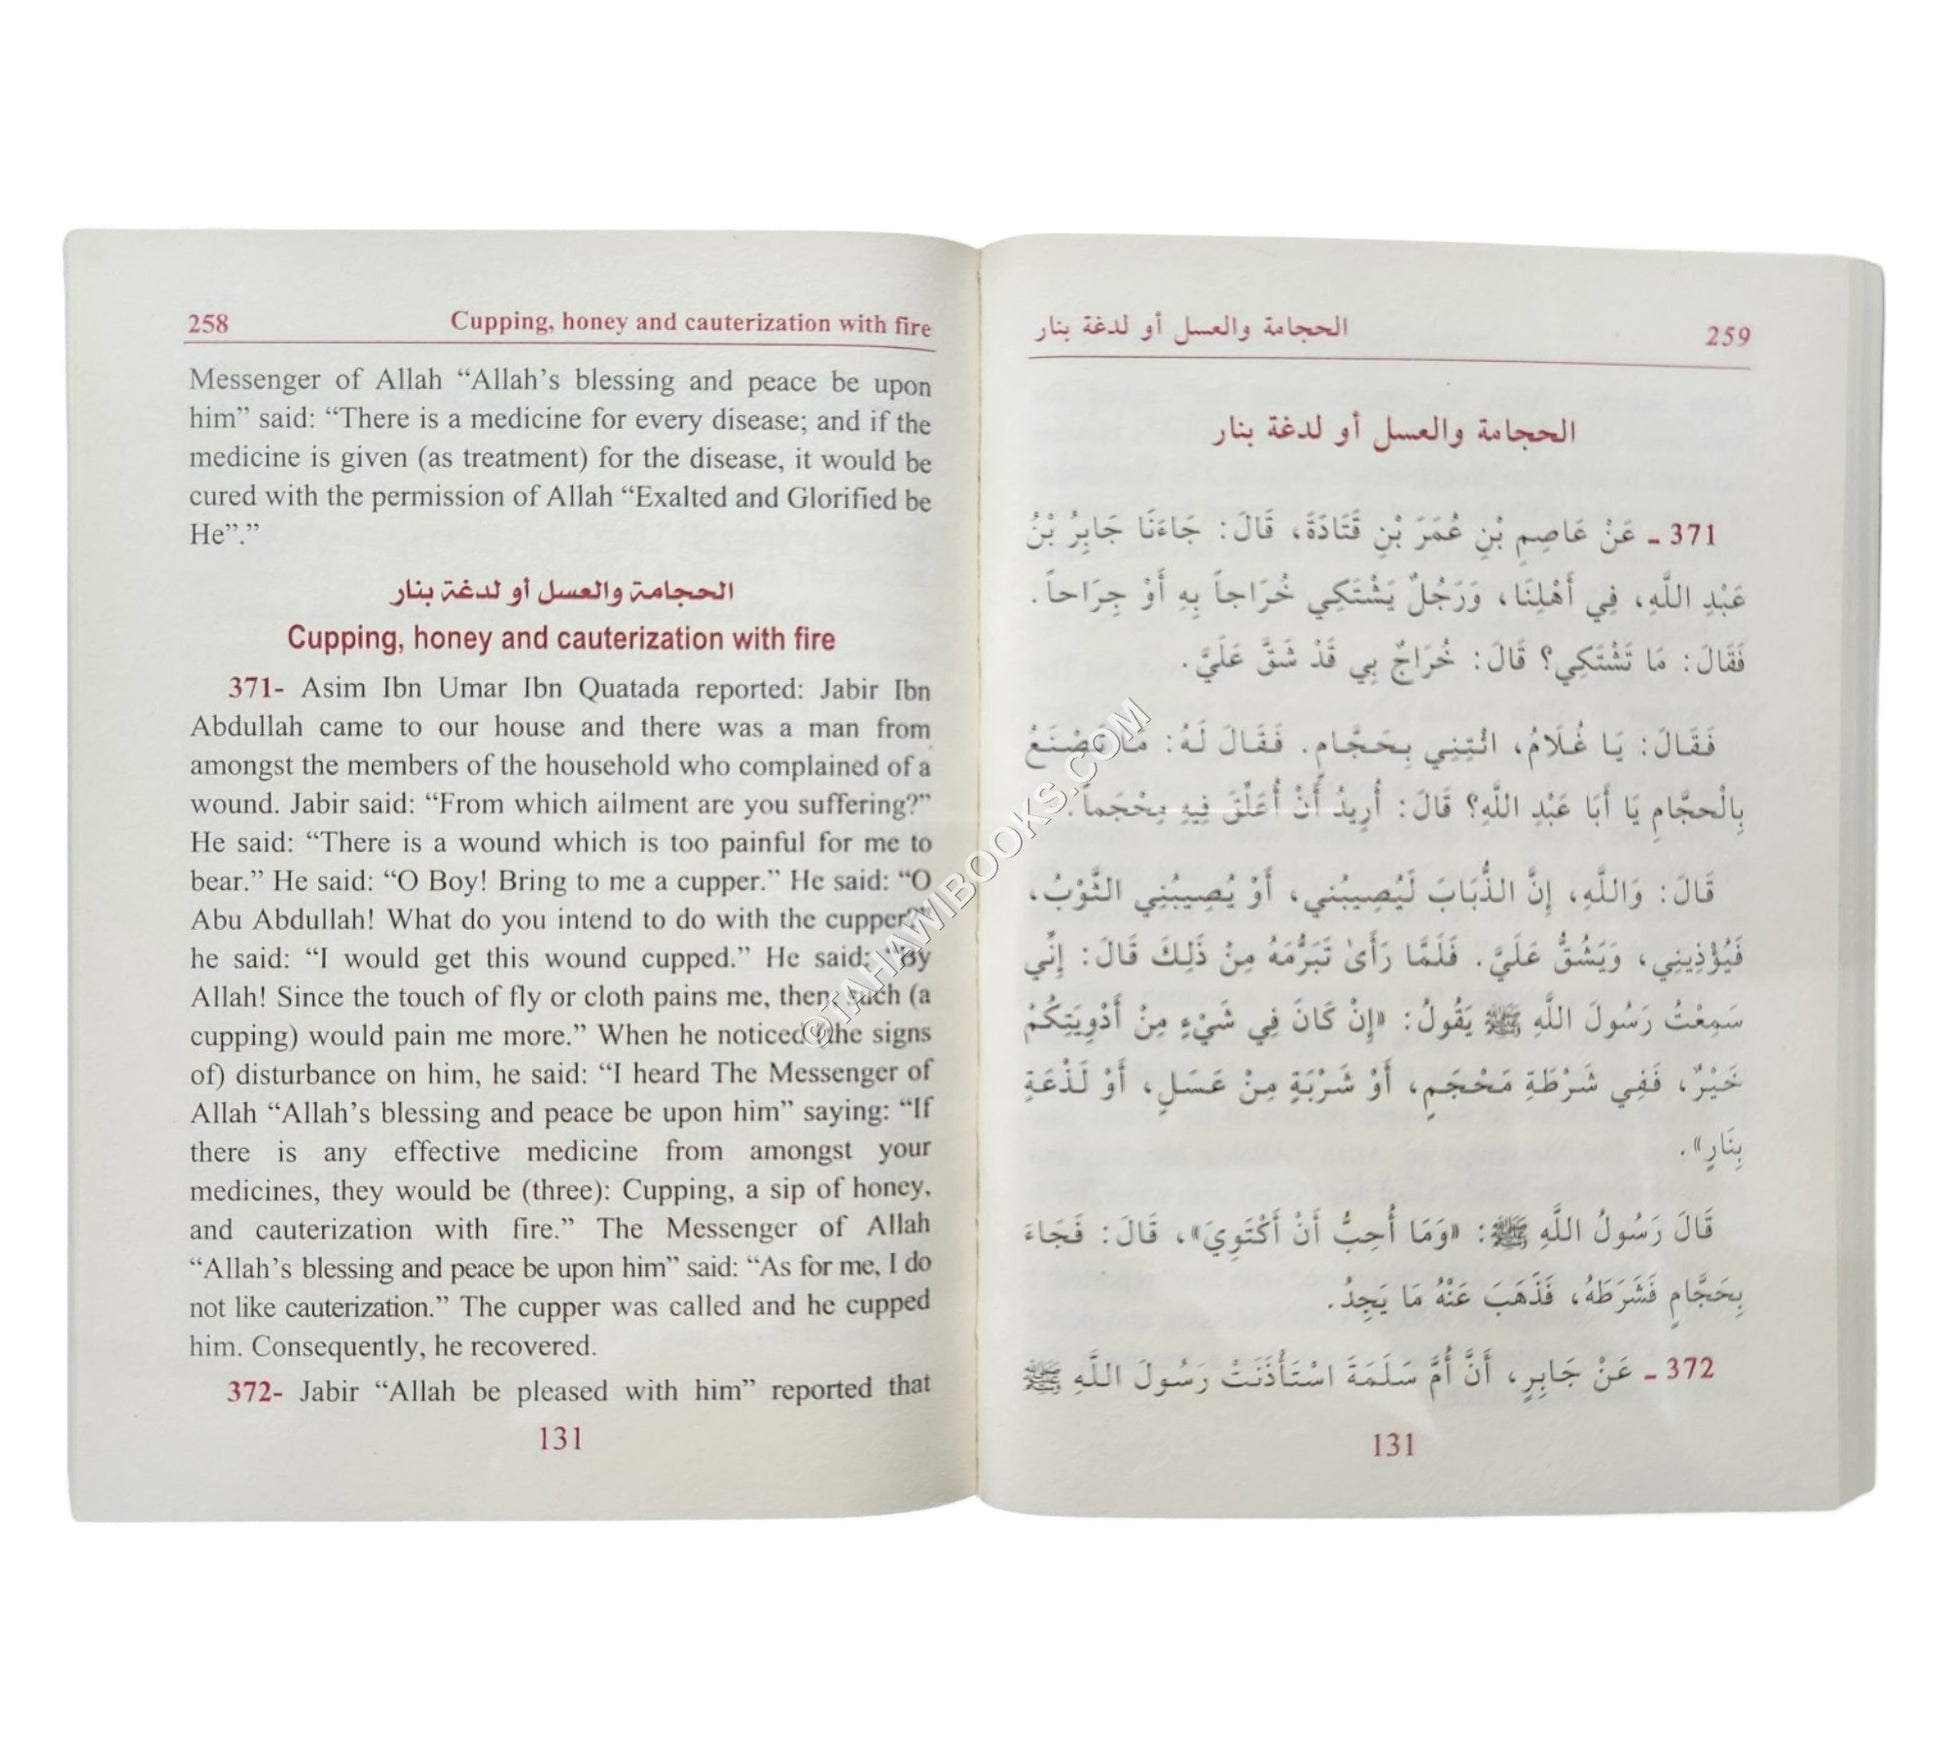 258 Cupping, honey and cauterization with fire
Messenger of Allah “Allah’s blessing and peace be upon
him” said: “There is a medicine for every disease; and if the
medicine is given (as treatment) for the disease, it would be
cured with the permission of Allah “Exalted and Glorified be
He”.”
الحجامة والعسل أو لدغة بنار
Cupping, honey and cauterization with fire
371- Asim Ibn Umar Ibn Quatada reported: Jabir Ibn
Abdullah came to our house and there was a man from
amongst the members of the household who complained of a
wound. Jabir said: “From which ailment are you suffering?”
He said: “There is a wound which is too painful for me to
bear.” He said: “O Boy! Bring to me a cupper.” He said: “O
Abu Abdullah! What do you intend to do with the cupper?”
he said: “I would get this wound cupped.” He said: “By
Allah! Since the touch of fly or cloth pains me, then such (a
cupping) would pain me more.” When he noticed (the signs
of) disturbance on him, he said: “I heard The Messenger of
Allah “Allah’s blessing and peace be upon him” saying: “If
there is any effective medicine from amongst your
medicines, they would be (three): Cupping, a sip of honey,
and cauterization with fire.” The Messenger of Allah
“Allah’s blessing and peace be upon him” said: “As for me, I do
not like cauterization.” The cupper was called and he cupped
him. Consequently, he recovered.
372- Jabir “Allah be pleased with him” reported that
131
الحجامة والعسل أو لدغة بنار 259
الحجامة والعسل أو لدغة بنار
371 ـ عَنْ عَاصِمِ بْنِ عُمَرَ بْنِ قَتَادَةَ، قَالَ: جَاءَنَا جَابِرُ بْنُ
عَبْدِ اللَّهِ، فِي أَهْلِنَا، وَرَجُلٌ يَشْتَكِي خُرَاجاً بِهِ أَوْ جِرَاحاً.
فَقَالَ: مَا تَشْتَكِي؟ قَالَ: خُرَاجٌ بِي قَدْ شَقَّ عَلَيَّ.
فَقَالَ: يَا غُلَامُ، ائْتِنِي بِحَجَّامٍ. فَقَالَ لَهُ: مَا تَصْنَعُ
بِالْحجَّامِ يَا أَبَا عَبْدِ اللَّهِ؟ قَالَ: أُرِيدُ أَنْ أُعَلِّقَ فِيهِ مِحْجَماً.
قَالَ: وَاللَّهِ، إِنَّ الذُّبَابَ لَيُصِيبُنِي، أَوْ يُصِيبُنِي الثَّوْبُ،
فَيُؤْذِينِي، وَيَشُقُّ عَلَيَّ. فَلَمَّا رَأَىٰ تَبَرُّمَهُ مِنْ ذَلِكَ قَالَ: إِنِّي
سَمِعْتُ رَسُولَ اللَّهِ ﷺ يَقُولُ: «إِنْ كَانَ فِي شَيْءٍ مِنْ أَدْوِيَتِكُمْ
خَيْرٌ، فَفِي شَرْطَةِ مَحْجَمٍ، أَوْ شَرْبَةٍ مِنْ عَسَلٍ، أَوْ لَذْعَةٍ
بِنَارٍ».
قَالَ رَسُولُ اللَّهِ ﷺ: «وَمَا أُحِبُّ أَنْ أَكْتَوِيَ»، قَالَ: فَجَاءَ
بِحَجَّامٍ فَشَرَطَهُ، فَذَهَبَ عَنْهُ مَا يَجِدُ.
372 ـ عَنْ جَابِرٍ، أَنَّ أُمَّ سَلَمَةَ اسْتَأْذَنَتْ رَسُولَ اللَّهِ ﷺ
131
©TAHAWIBOOKS.COM